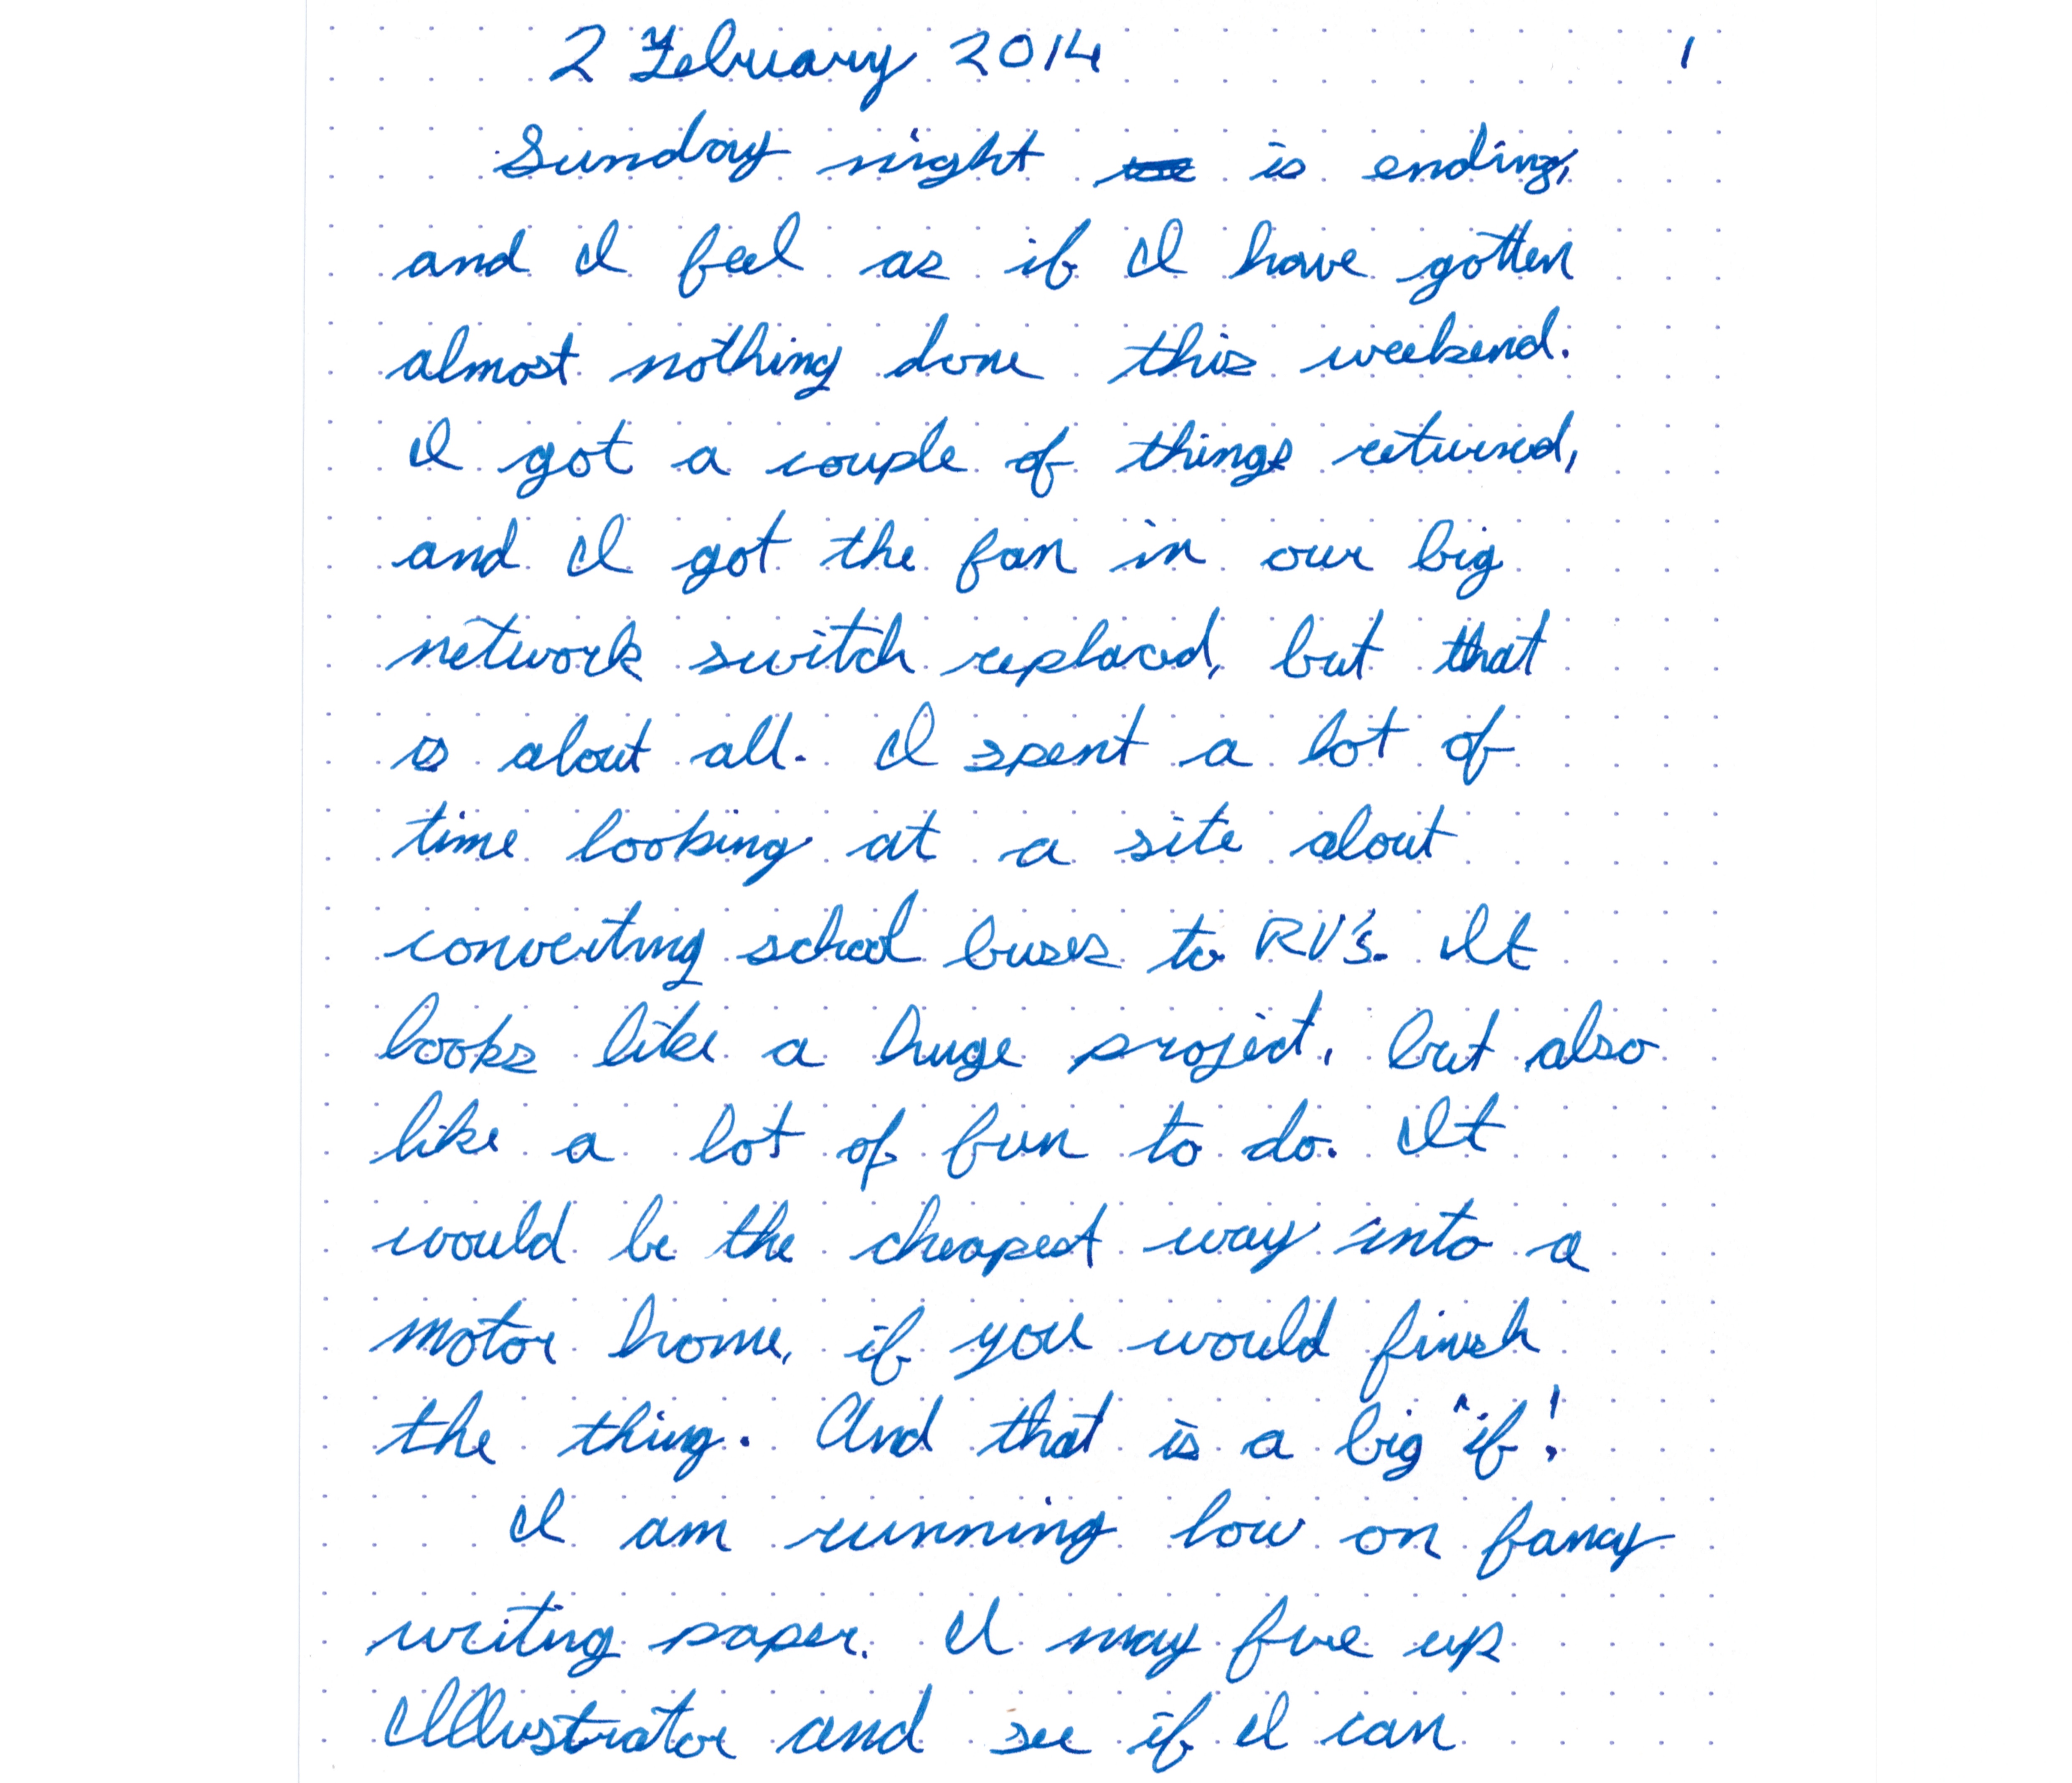 2 February 2014 1
Sunday night is ending,
and I feel as if I have gotten
almost nothing done this weekend.
I got a couple of things returned,
and I got the fan in our big
network switch replaced, but that
is about all. I spent a lot of
time looking at a site about
converting school buses to RV's. It
looks like a huge project, but also
like a lot of fun to do. It
would be the cheapest way into a
motor home, if you would finish
the thing. And that is a big "if"!
I am running low on fancy
writing paper. I may fire up
Illustrator and see if I can